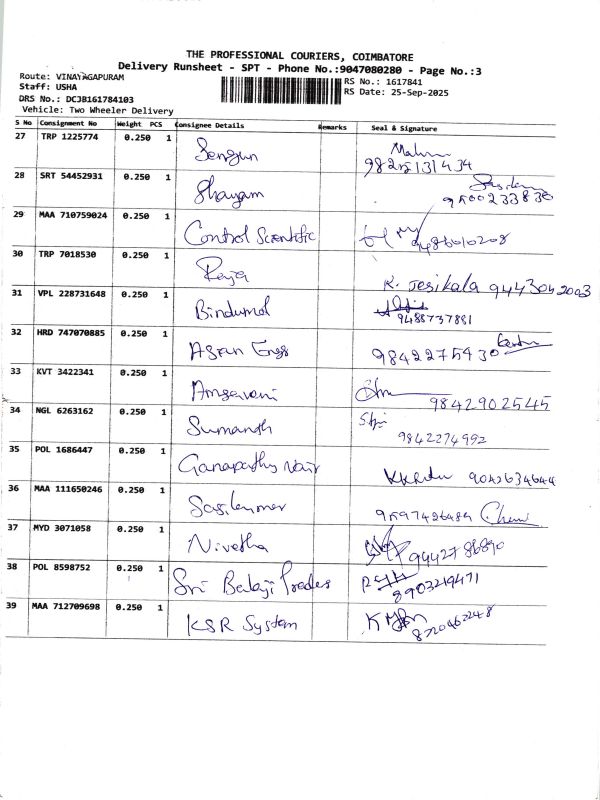 THE PROFESSIONAL COURIERS, COIMBATORE
Delivery Runsheet - SPT - Phone No.:9047080280 - Page No.:3
Route: VINAYAGAPURAM
RS No.: 1617841
Staff: USHA
RS Date: 25-Sep-2025
DRS No.: DCJB161784103
Vehicle: Two Wheeler Delivery
S No Consignment No Weight PCS Consignee Details Remarks Seal & Signature
27 TRP 1225774 0.250 1
28 SRT 54452931 0.250 1 Shayam
29 MAA 710759024 0.250 1 Control Scientific
30 TRP 7018530 0.250 1 Raja K. Jesikala 9443042003
31 VPL 228731648 0.250 1 Bindumol 9488737881
32 HRD 747070885 0.250 1 Asian Engg 9842275430
33 KVT 3422341 0.250 1 9842902545
34 NGL 6263162 0.250 1 Sumanth 9842274992
35 POL 1686447 0.250 1 Ganapathy Nair 9042634644
36 MAA 111650246 0.250 1 Sasikumar
37 MYD 3071058 0.250 1 Nivetha 9442786890
38 POL 8598752 0.250 1 Sri Balaji Traders 8903219471
39 MAA 712709698 0.250 1 KSR System